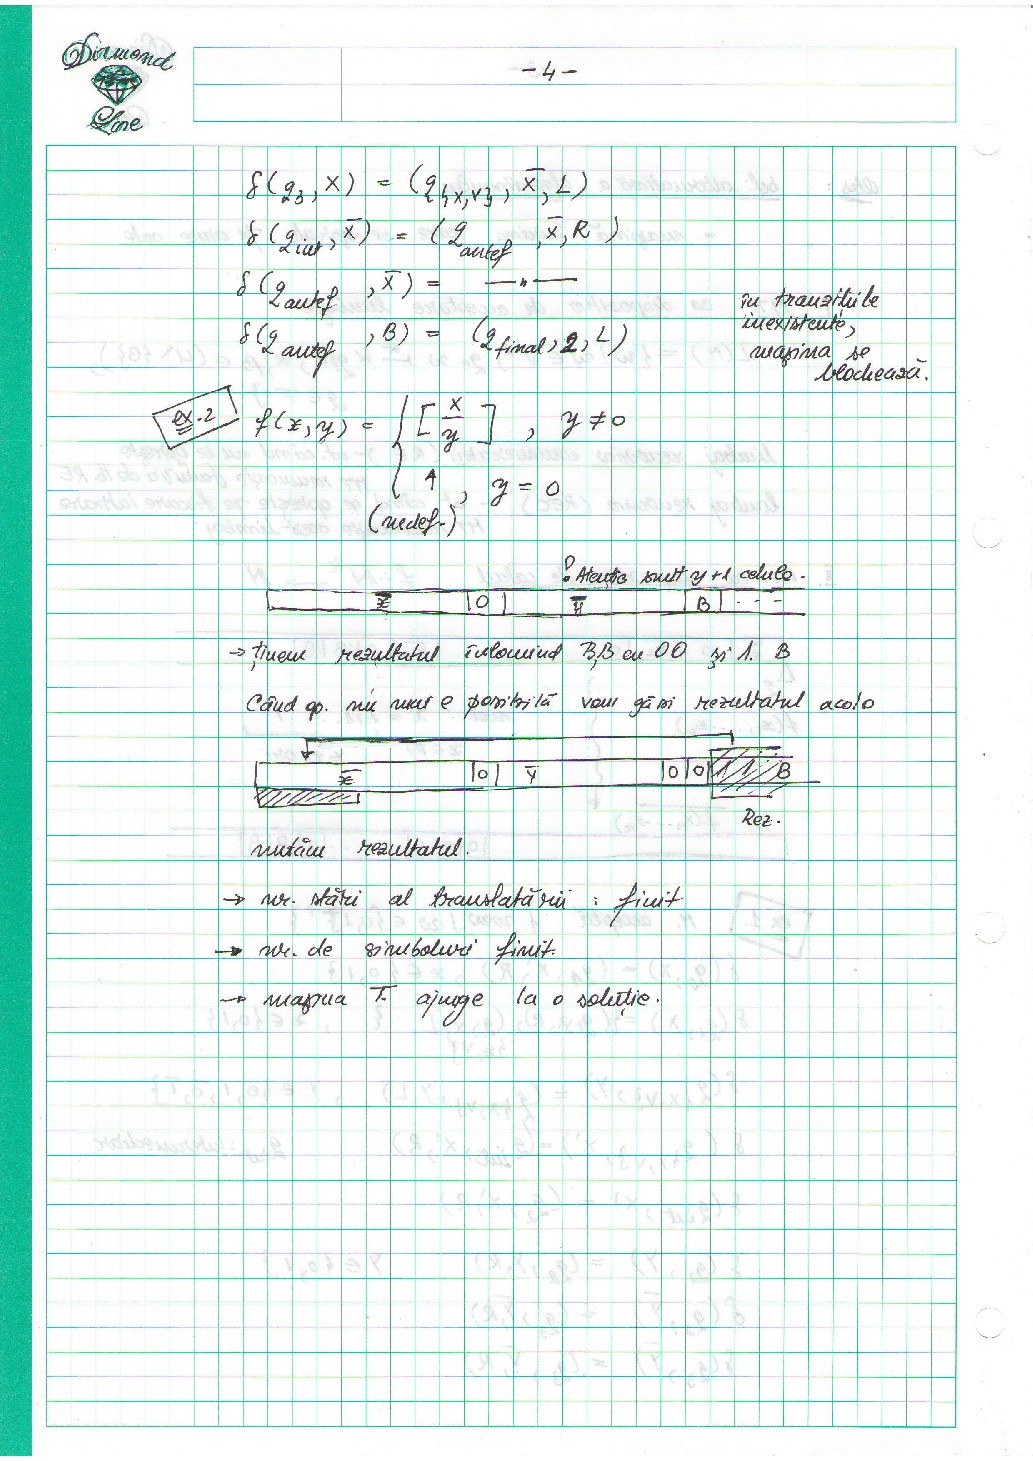 Diamond
Line
- 4 -
δ(q₃, X) = (q{x,v}, X̅, L)
δ(q int, X̅) = (q autef, X̅, R)
δ(q autef, X̅) = —"—
δ(q autef, B) = (q final, 2, L)
în tranzițiile
inexistente,
mașina se
blochează.
ex. 2
f(x, y) = { [x/y], y ≠ 0
↑, y = 0
(nedef.)
! Atenție sunt y+1 celule.
x̅ 0 y̅ B - - -
→ ținem rezultatul înlocuind B,B cu 00 și 1. B
Când op. nu mai e posibilă vom găsi rezultatul acolo
x̅ 0 y̅ 0 0 1 1 B
Rez.
mutăm rezultatul.
→ nr. stări al translatării : finit
→ nr. de simboluri finit.
→ mașina T. ajunge la o soluție.